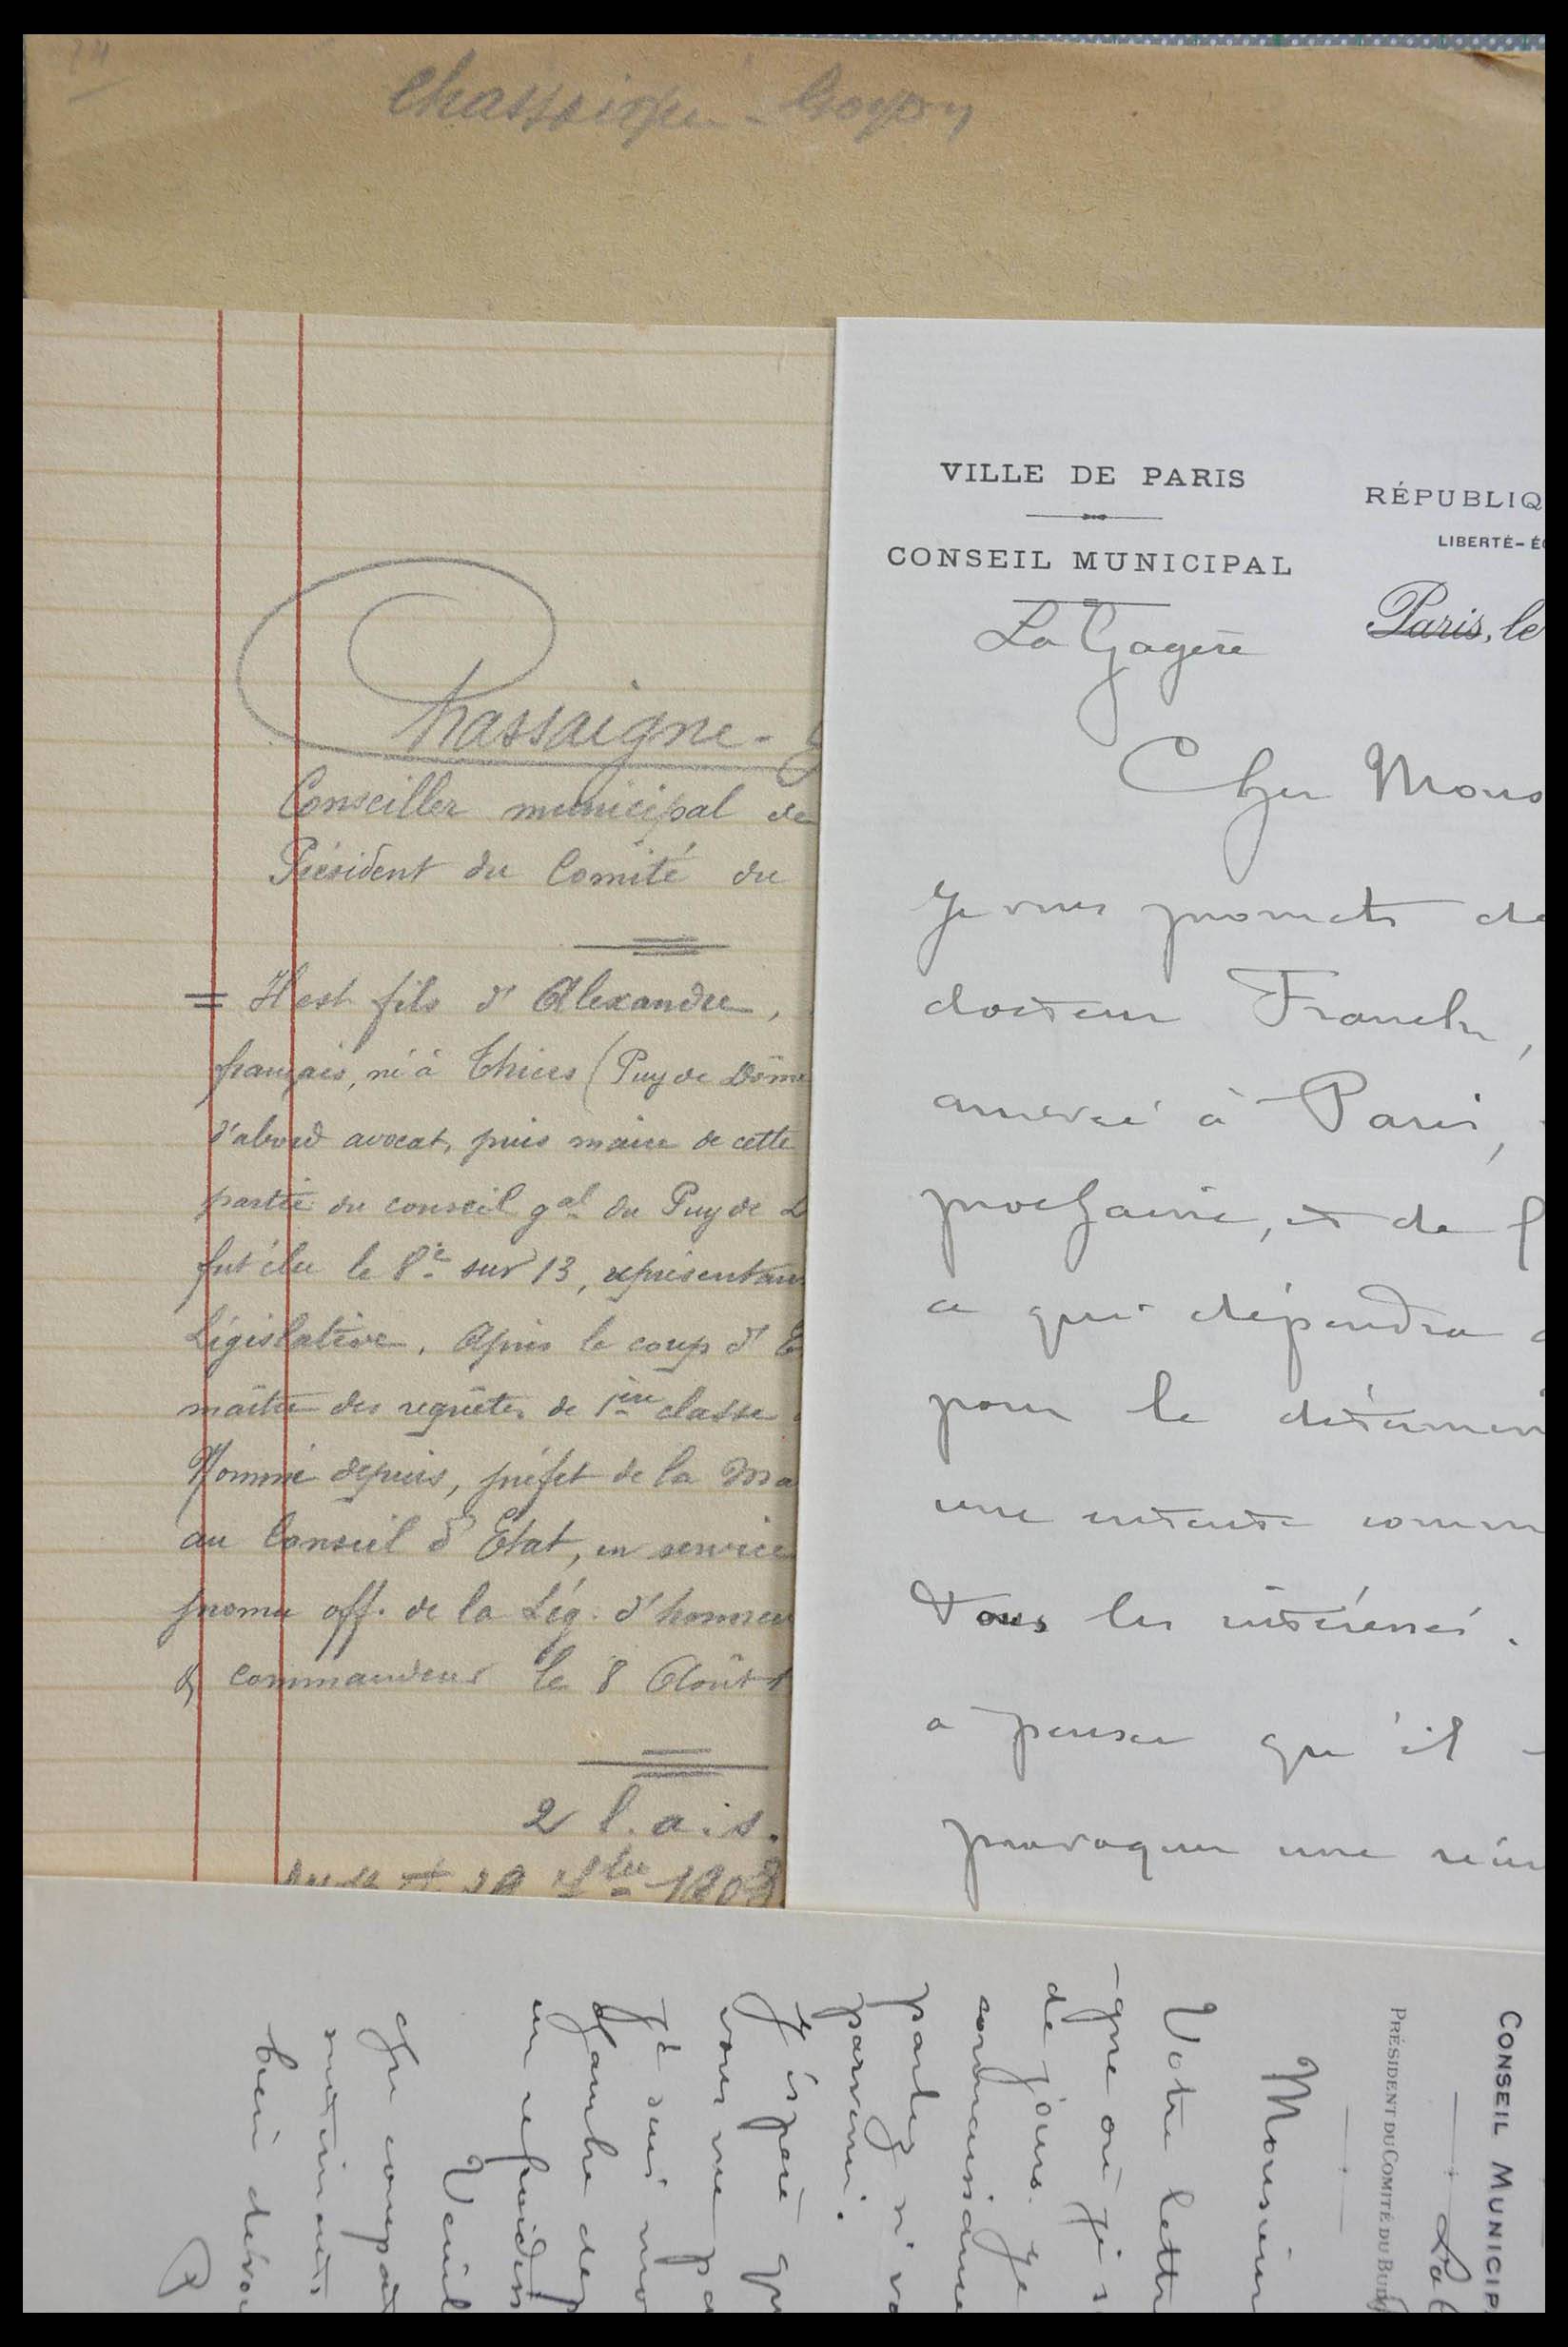 74
Chassaigne-Goyon
Chassaigne-G
Conseiller municipal de
Président du Comité du
= Il est fils d'Alexandre,
français, né à Thiers (Puy de Dôme
d'abord avocat, puis maire de cette
partie du conseil gal du Puy de D
fut élu le 8e sur 13, représentan
Législative. Après le coup d'E
maître des requêtes de 1ère classe
Nommé depuis, préfet de la Ma
au Conseil d'Etat, en service
promu off. de la Lég. d'honneu
& commandeur le 8 Août 1
2 l.a.s.
1903
VILLE DE PARIS
CONSEIL MUNICIPAL
RÉPUBLIQ
LIBERTÉ-ÉG
Paris, le
La Gagère
Cher Mons
Je vous promets de
docteur Franck,
arrivée à Paris,
prochaine, et de f
a qui dépendra
pour le détermin
une entente comm
tous les intéressés.
a penser qu'il
provoquer une réun
CONSEIL MUNICIP
La G
PRÉSIDENT DU COMITÉ DU BUDG
Monsieur
Votre lettre
-gne où j'ai
de jours. Je
connaissance
parlez n'
parvenu.
J'espère que
vous me pa
Je suis
Chambre des
un
Veuil
Je
sentiments
bien dévou